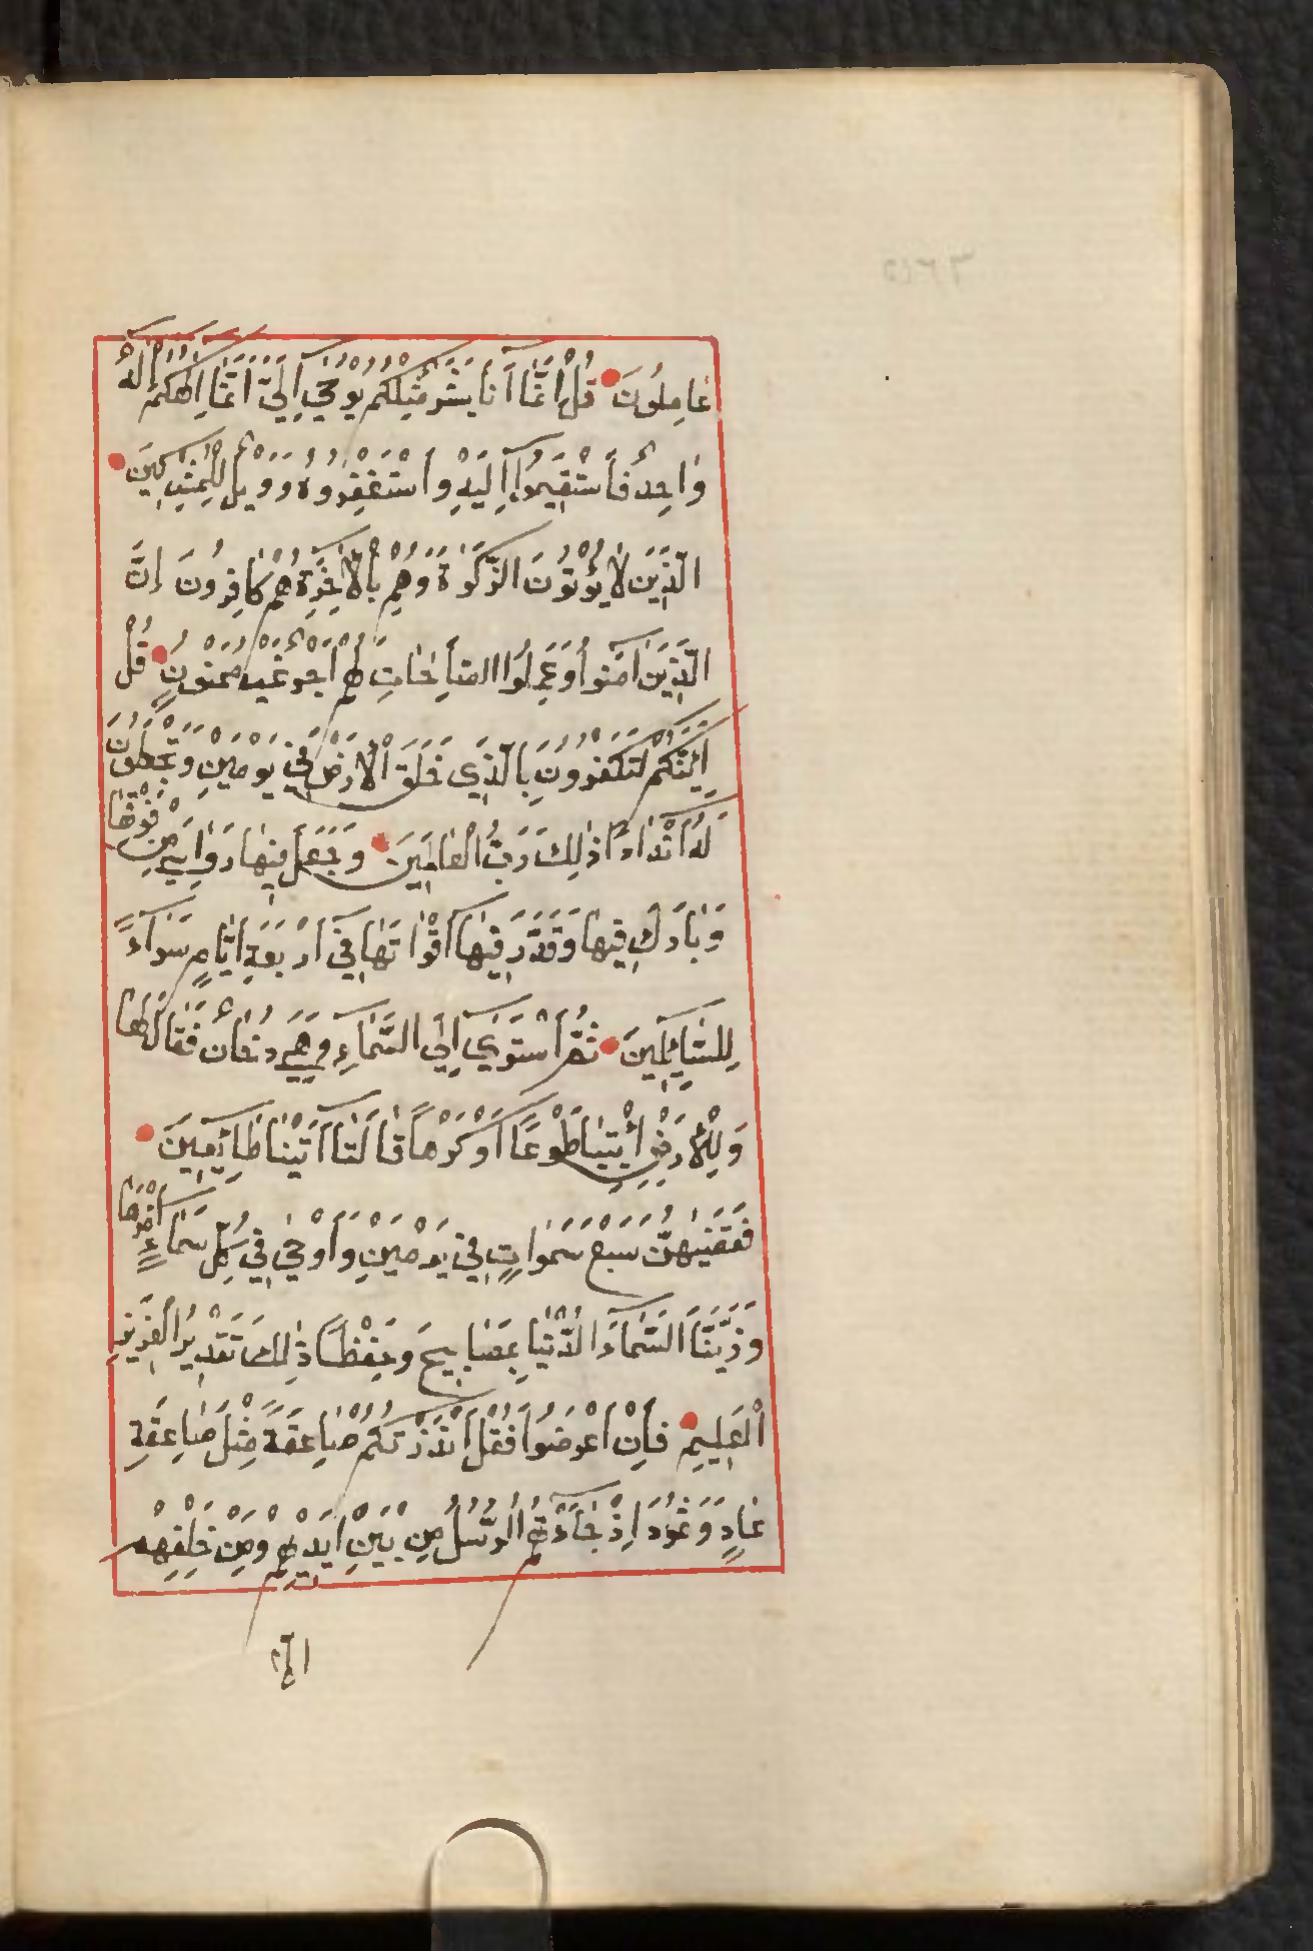 عَامِلُونَ قُلْ اَنَّمَا اَنَا بَشَرٌ مِثْلُكُمْ يُوْحَي اِلَيَّ اَنَّمَا اِلٰهُكُمْ اِلٰهٌ
وَاحِدٌ فَاسْتَقِيمُوا اِلَيْهِ وَاسْتَغْفِرُوهُ وَوَيْلٌ لِلْمُشْرِكِينَ
الَّذِينَ لَا يُؤْتُونَ الزَّكَوٰةَ وَهُمْ بِالْاٰخِرَةِ هُمْ كَافِرُونَ اِنَّ
الَّذِينَ اٰمَنُوا وَعَمِلُوا الصَّالِحَاتِ لَهُمْ اَجْرٌ غَيْرُ مَمْنُونٍ قُلْ
اَئِنَّكُمْ لَتَكْفُرُونَ بِالَّذِي خَلَقَ الْاَرْضَ فِي يَوْمَيْنِ وَتَجْعَلُونَ
لَهُ اَنْدَادًا ذٰلِكَ رَبُّ الْعَالَمِينَ وَجَعَلَ فِيهَا رَوَاسِيَ مِنْ فَوْقِهَا
وَبَارَكَ فِيهَا وَقَدَّرَ فِيهَا اَقْوَاتَهَا فِي اَرْبَعَةِ اَيَّامٍ سَوَاءً
لِلسَّائِلِينَ ثُمَّ اسْتَوَي اِلَي السَّمَاءِ وَهِيَ دُخَانٌ فَقَالَ لَهَا
وَلِلْاَرْضِ اْئْتِيَا طَوْعًا اَوْ كَرْهًا قَالَتَا اَتَيْنَا طَائِعِينَ
فَقَضٰيهُنَّ سَبْعَ سَمَوَاتٍ فِي يَوْمَيْنِ وَاَوْحَي فِي كُلِّ سَمَاءٍ اَمْرَهَا
وَزَيَّنَّا السَّمَاءَ الدُّنْيَا بِمَصَابِيحَ وَحِفْظًا ذٰلِكَ تَقْدِيرُ الْعَزِيزِ
الْعَلِيمِ فَاِنْ اَعْرَضُوا فَقُلْ اَنْذَرْتُكُمْ صَاعِقَةً مِثْلَ صَاعِقَةِ
عَادٍ وَثَمُودَ اِذْ جَاءَتْهُمُ الرُّسُلُ مِنْ بَيْنِ اَيْدِيهِمْ وَمِنْ خَلْفِهِمْ